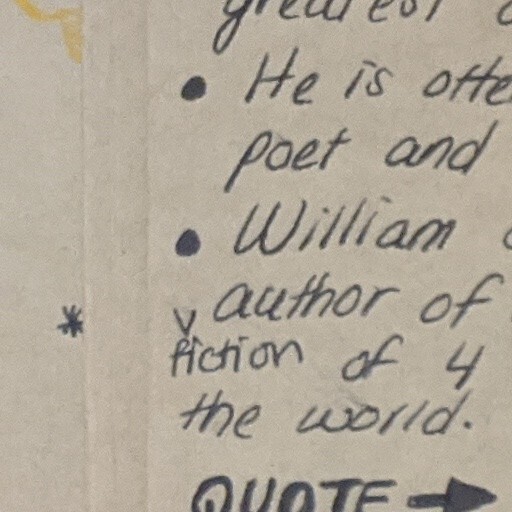 greatest
• He is ofte
poet and
• William
* v author of
fiction of 4
the world.
QUOTE →